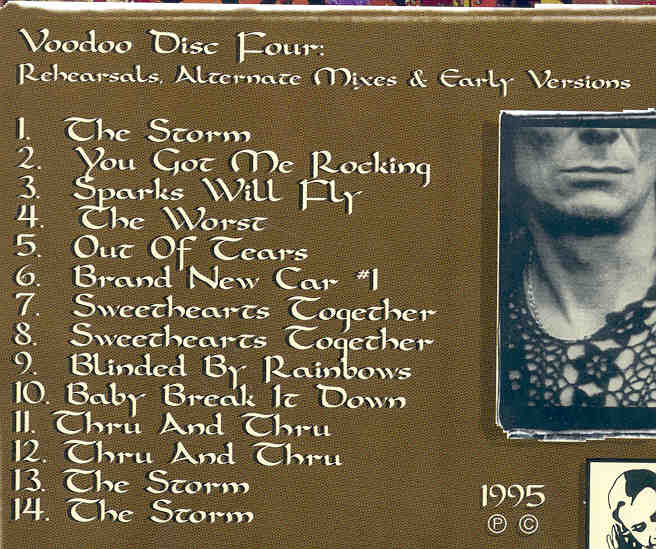 Voodoo Disc Four:
Rehearsals, Alternate Mixes & Early Versions
1. The Storm
2. You Got Me Rocking
3. Sparks Will Fly
4. The Worst
5. Out Of Tears
6. Brand New Car #1
7. Sweethearts Together
8. Sweethearts Together
9. Blinded By Rainbows
10. Baby Break It Down
11. Thru And Thru
12. Thru And Thru
13. The Storm
14. The Storm
1995
℗ ©